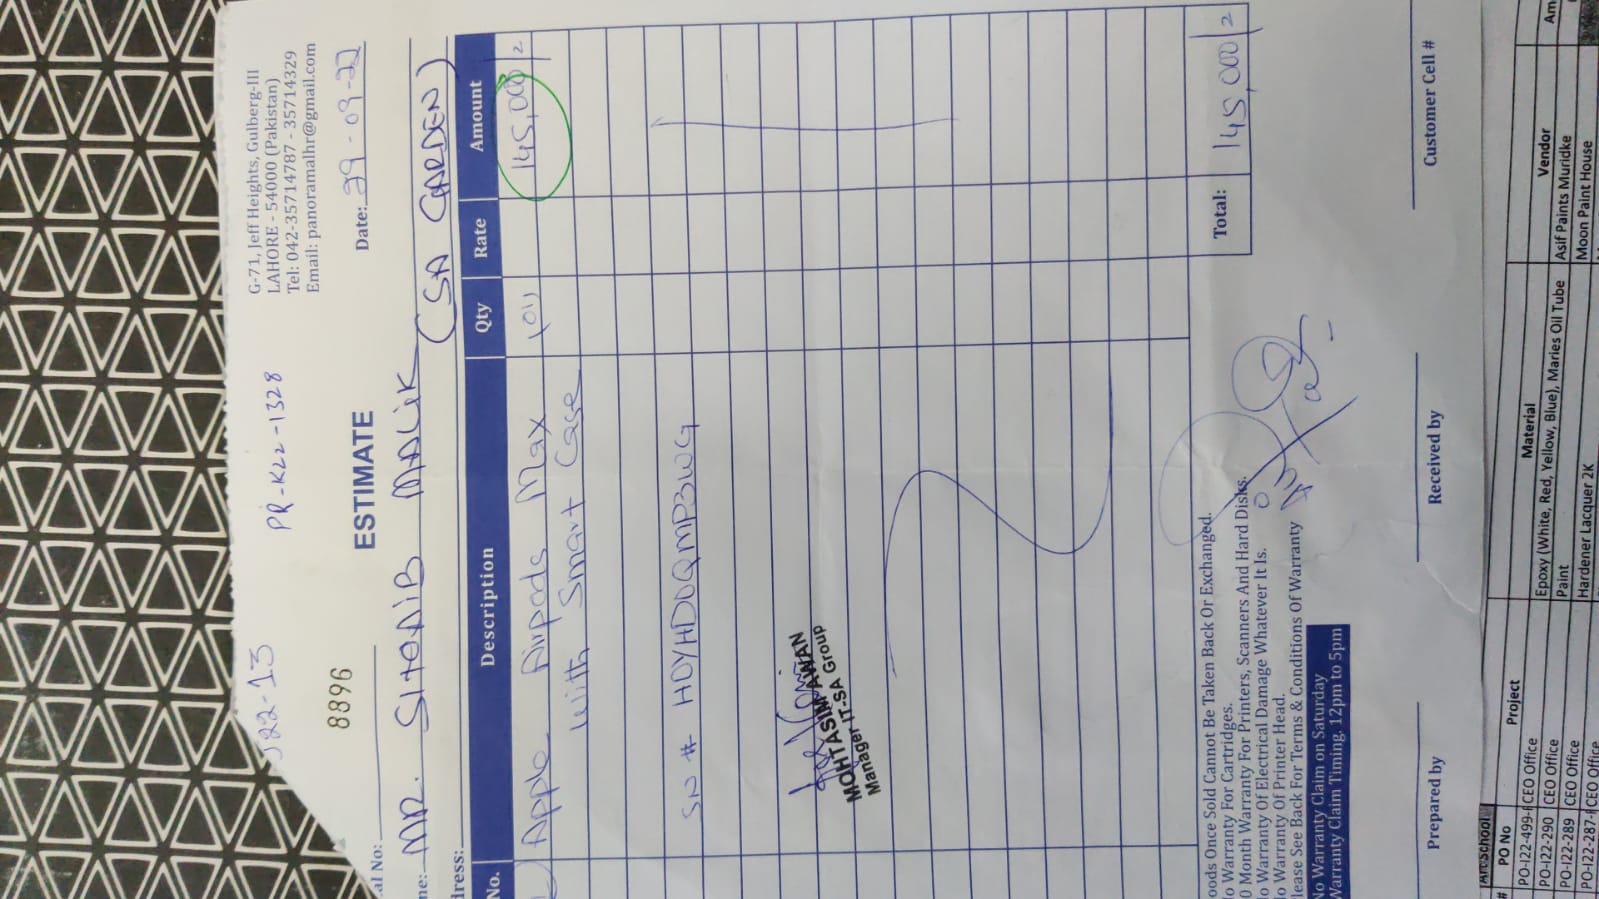 J22-13
PR-K22-1328
G-71, Jeff Heights, Gulberg-III
LAHORE - 54000 (Pakistan)
Tel: 042-35714787 - 35714329
Email: panoramalhr@gmail.com
8896
al No:
ESTIMATE
Date: 29-09-22
me: MR. SHOAIB MALIK
(SA GARDEN)
dress:
No. Description Qty Rate Amount
Apple Airpods Max (01) 145,000/2
with Smart Case
SN # H0YHD0QMP3WG
MOHTASIM AWAN
Manager IT-SA Group
oods Once Sold Cannot Be Taken Back Or Exchanged.
o Warranty For Cartridges.
0 Month Warranty For Printers, Scanners And Hard Disks.
o Warranty Of Electrical Damage Whatever It Is.
o Warranty Of Printer Head.
lease See Back For Terms & Conditions Of Warranty
Total: 145,000/2
No Warranty Claim on Saturday
Warranty Claim Timing. 12pm to 5pm
Prepared by Received by Customer Cell #
Art School
# PO No Project Material Vendor Am
PO-I22-499- CEO Office Epoxy (White, Red, Yellow, Blue), Maries Oil Tube Asif Paints Muridke
PO-I22-290 CEO Office Paint Moon Paint House
PO-I22-289 CEO Office Hardener Lacquer 2K
PO-I22-287- CEO Office